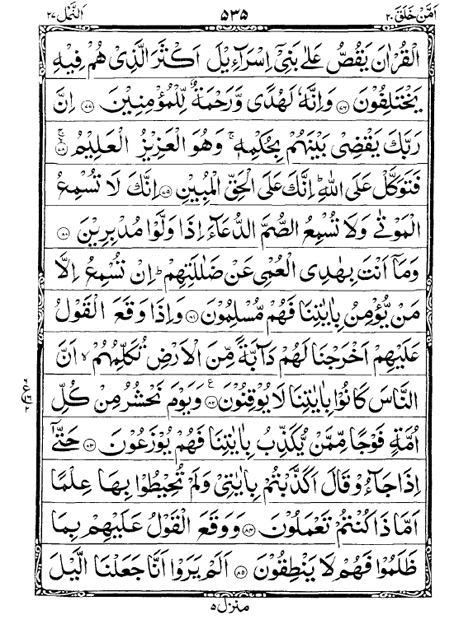 اَمَّنْ خَلَقَ ٢٠ ٥٣٥ اَلنَّمْل ٢٧
الْقُرْاٰنَ يَقُصُّ عَلٰى بَنِىْٓ اِسْرَآءِيْلَ اَكْثَرَ الَّذِىْ هُمْ فِيْهِ
يَخْتَلِفُوْنَ ۝٧٦ وَاِنَّهٗ لَهُدًى وَّرَحْمَةٌ لِّلْمُؤْمِنِيْنَ ۝٧٧ اِنَّ
رَبَّكَ يَقْضِىْ بَيْنَهُمْ بِحُكْمِهٖ ۚ وَهُوَ الْعَزِيْزُ الْعَلِيْمُ ۝٧٨
فَتَوَكَّلْ عَلَى اللّٰهِ ؕ اِنَّكَ عَلَى الْحَقِّ الْمُبِيْنِ ۝٧٩ اِنَّكَ لَا تُسْمِعُ
الْمَوْتٰى وَلَا تُسْمِعُ الصُّمَّ الدُّعَآءَ اِذَا وَلَّوْا مُدْبِرِيْنَ ۝٨٠
وَمَآ اَنْتَ بِهٰدِى الْعُمْىِ عَنْ ضَلٰلَتِهِمْ ؕ اِنْ تُسْمِعُ اِلَّا
مَنْ يُّؤْمِنُ بِاٰيٰتِنَا فَهُمْ مُّسْلِمُوْنَ ۝٨١ وَاِذَا وَقَعَ الْقَوْلُ
عَلَيْهِمْ اَخْرَجْنَا لَهُمْ دَآبَّةً مِّنَ الْاَرْضِ تُكَلِّمُهُمْ ۙ اَنَّ
النَّاسَ كَانُوْا بِاٰيٰتِنَا لَا يُوْقِنُوْنَ ۝٨٢ وَيَوْمَ نَحْشُرُ مِنْ كُلِّ
اُمَّةٍ فَوْجًا مِّمَّنْ يُّكَذِّبُ بِاٰيٰتِنَا فَهُمْ يُوْزَعُوْنَ ۝٨٣ حَتّٰٓى
اِذَا جَآءُوْ قَالَ اَكَذَّبْتُمْ بِاٰيٰتِىْ وَلَمْ تُحِيْطُوْا بِهَا عِلْمًا
اَمَّاذَا كُنْتُمْ تَعْمَلُوْنَ ۝٨٤ وَوَقَعَ الْقَوْلُ عَلَيْهِمْ بِمَا
ظَلَمُوْا فَهُمْ لَا يَنْطِقُوْنَ ۝٨٥ اَلَمْ يَرَوْا اَنَّا جَعَلْنَا الَّيْلَ
منزل ٥